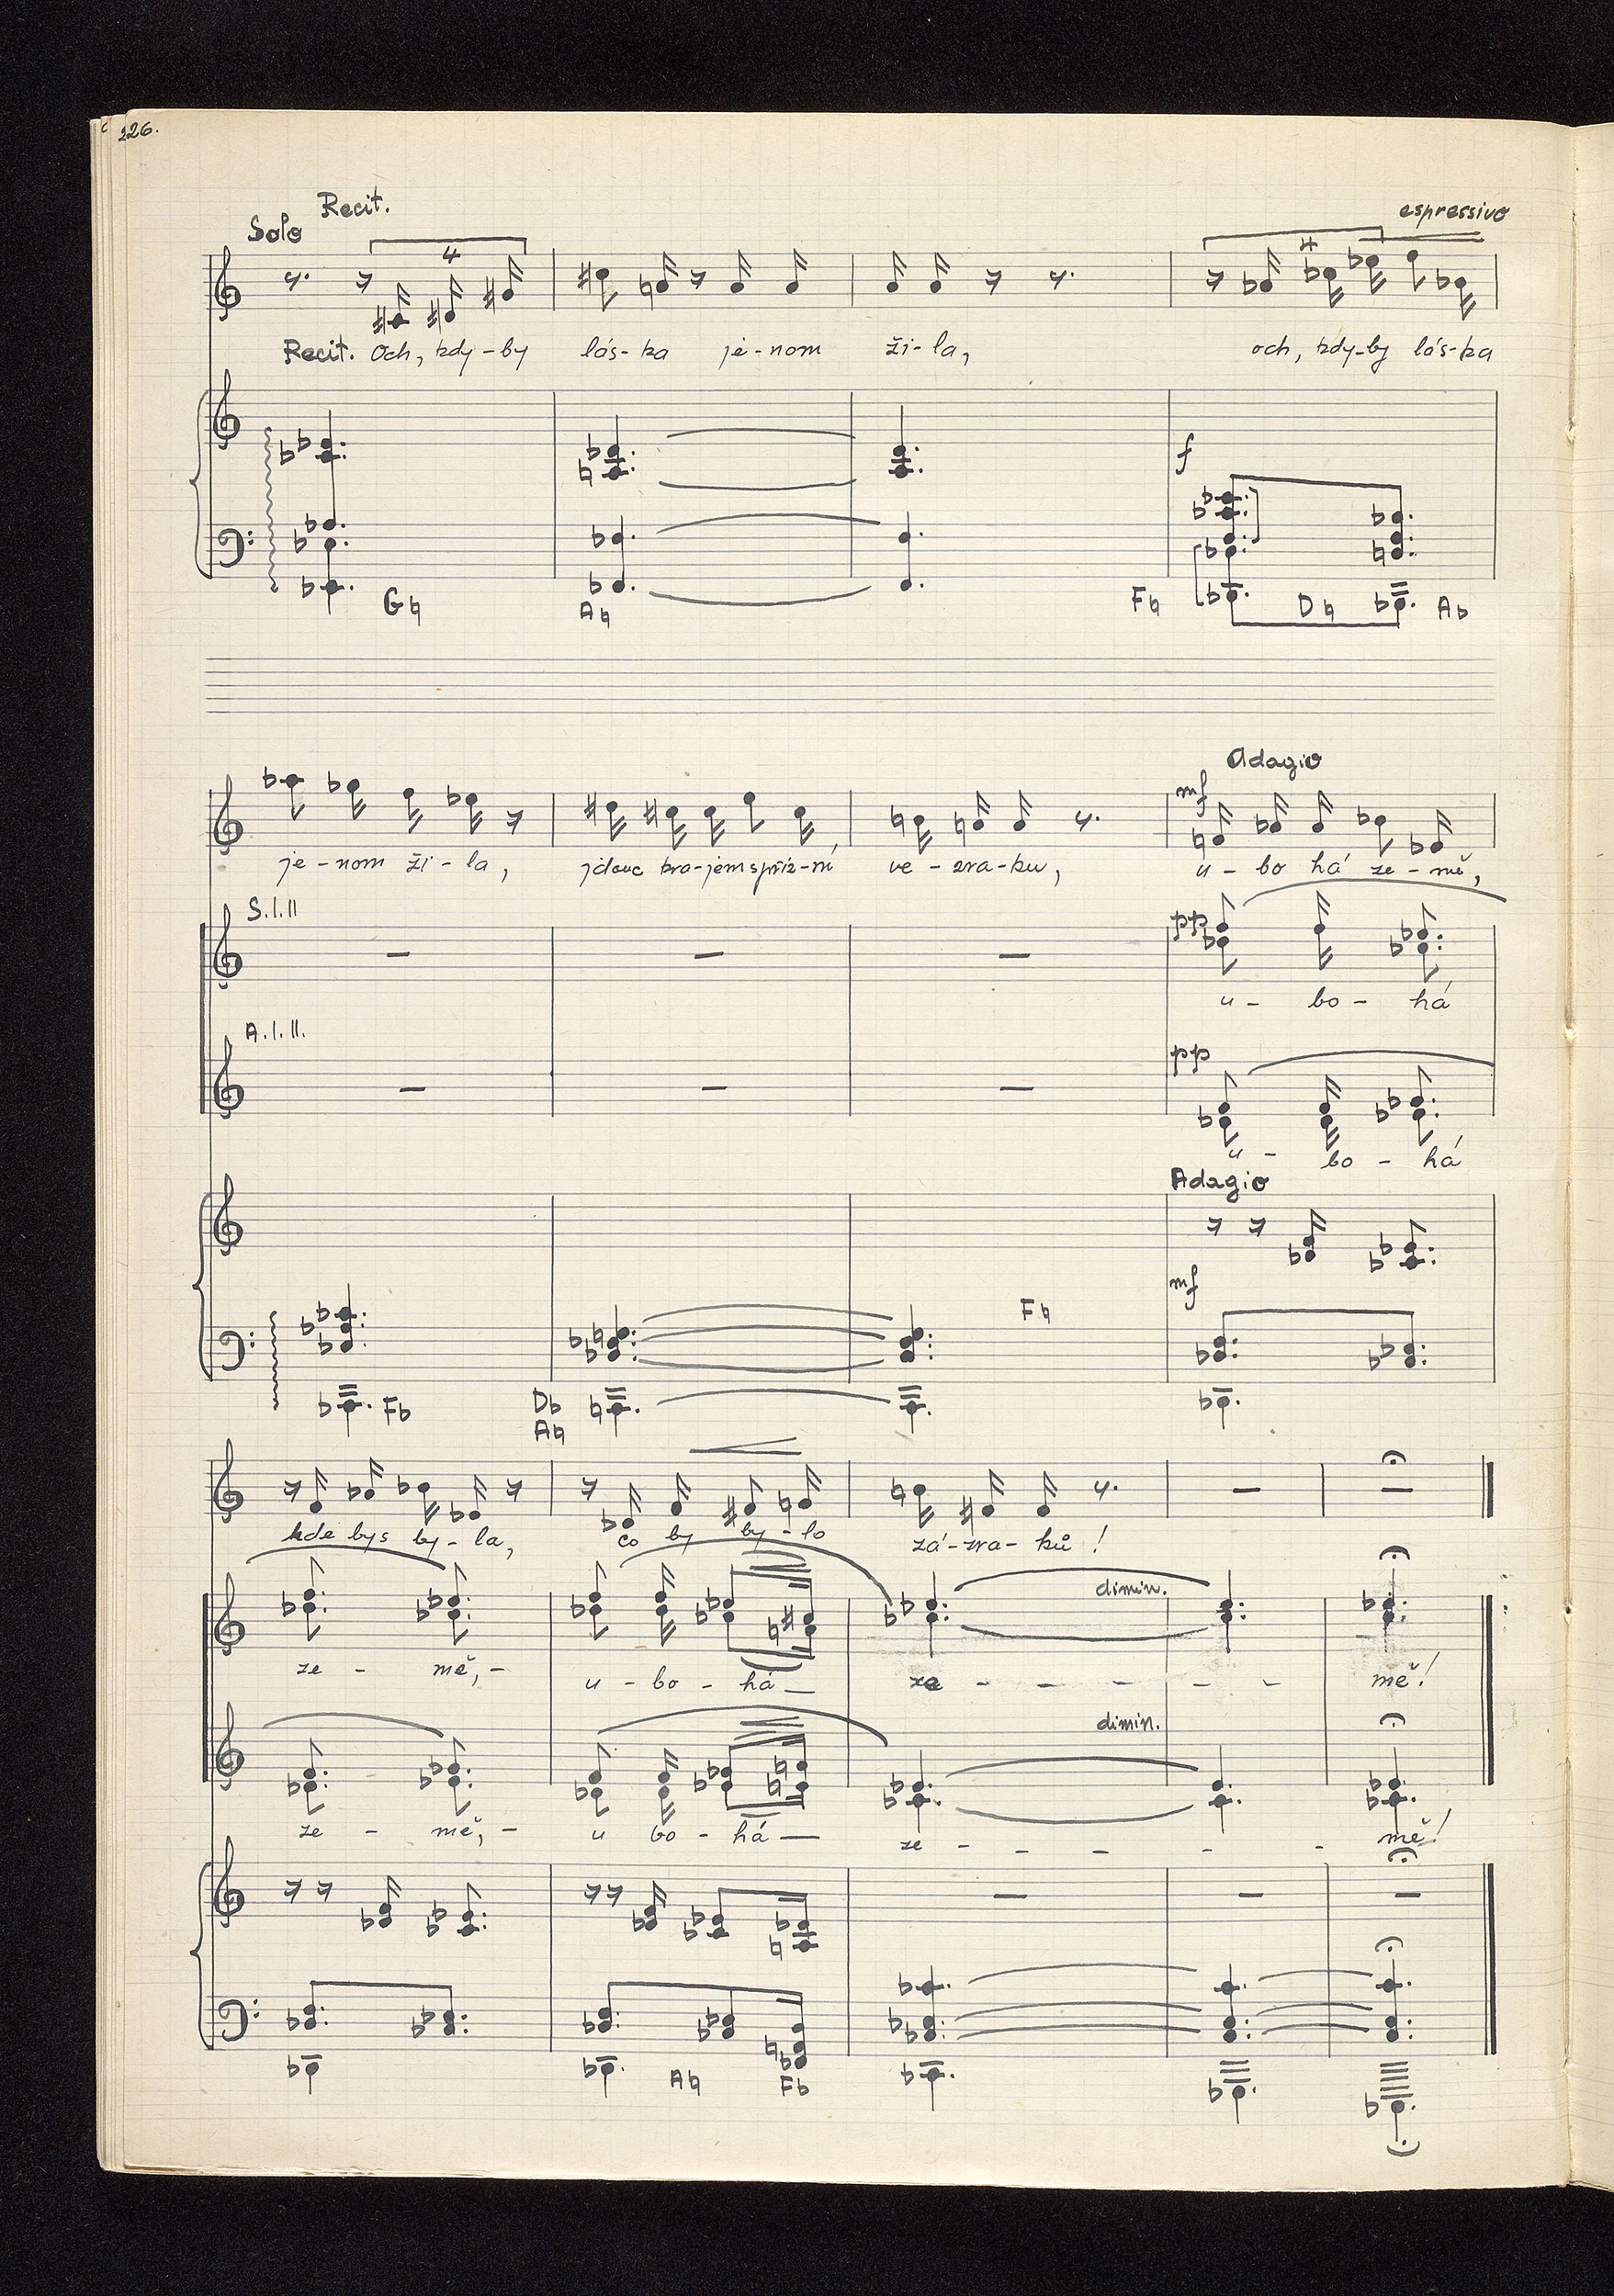 226.
Solo Recit. espressivo
4 4
Recit. Och, kdy-by lás-ka je-nom ži-la, och, kdy-by lás-ka
f
G♮ A♮ F♮ D♮ A♭
Adagio
mf
je-nom ži-la, jdouc kra-jem spříz-ní ve-zra-ku, u-bo há ze-mě,
S.I.II
pp
u-bo-há
A.I.II.
pp
u-bo-há
Adagio
mf
F♮
F♭ D♭
A♮
kde bys by-la, co by by-lo zá-zra-ků!
dimin.
ze-mě,- u-bo-há— ze------mě!
dimin.
ze-mě,- u bo-há— ze-----mě!
A♮ F♭